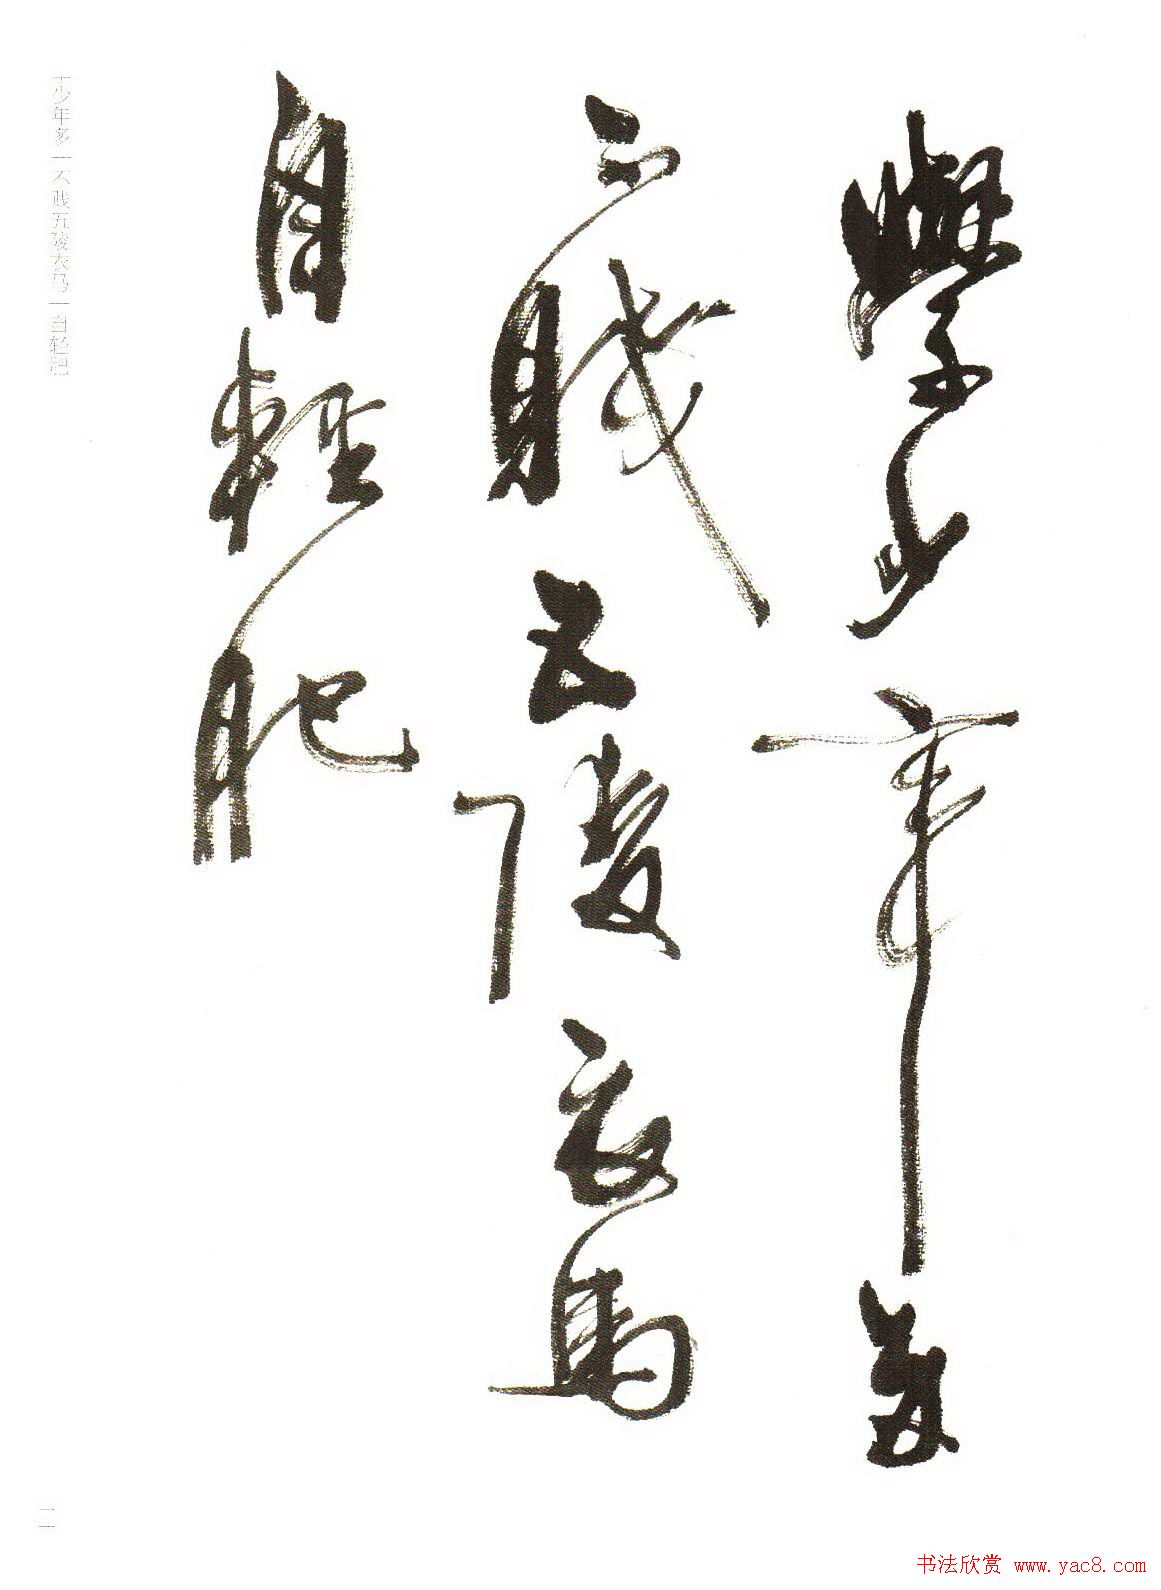 學少年多
不賤五陵衣馬
自輕肥
少年多一不贱五陵衣马一自轻肥
书法欣赏 www.yac8.com